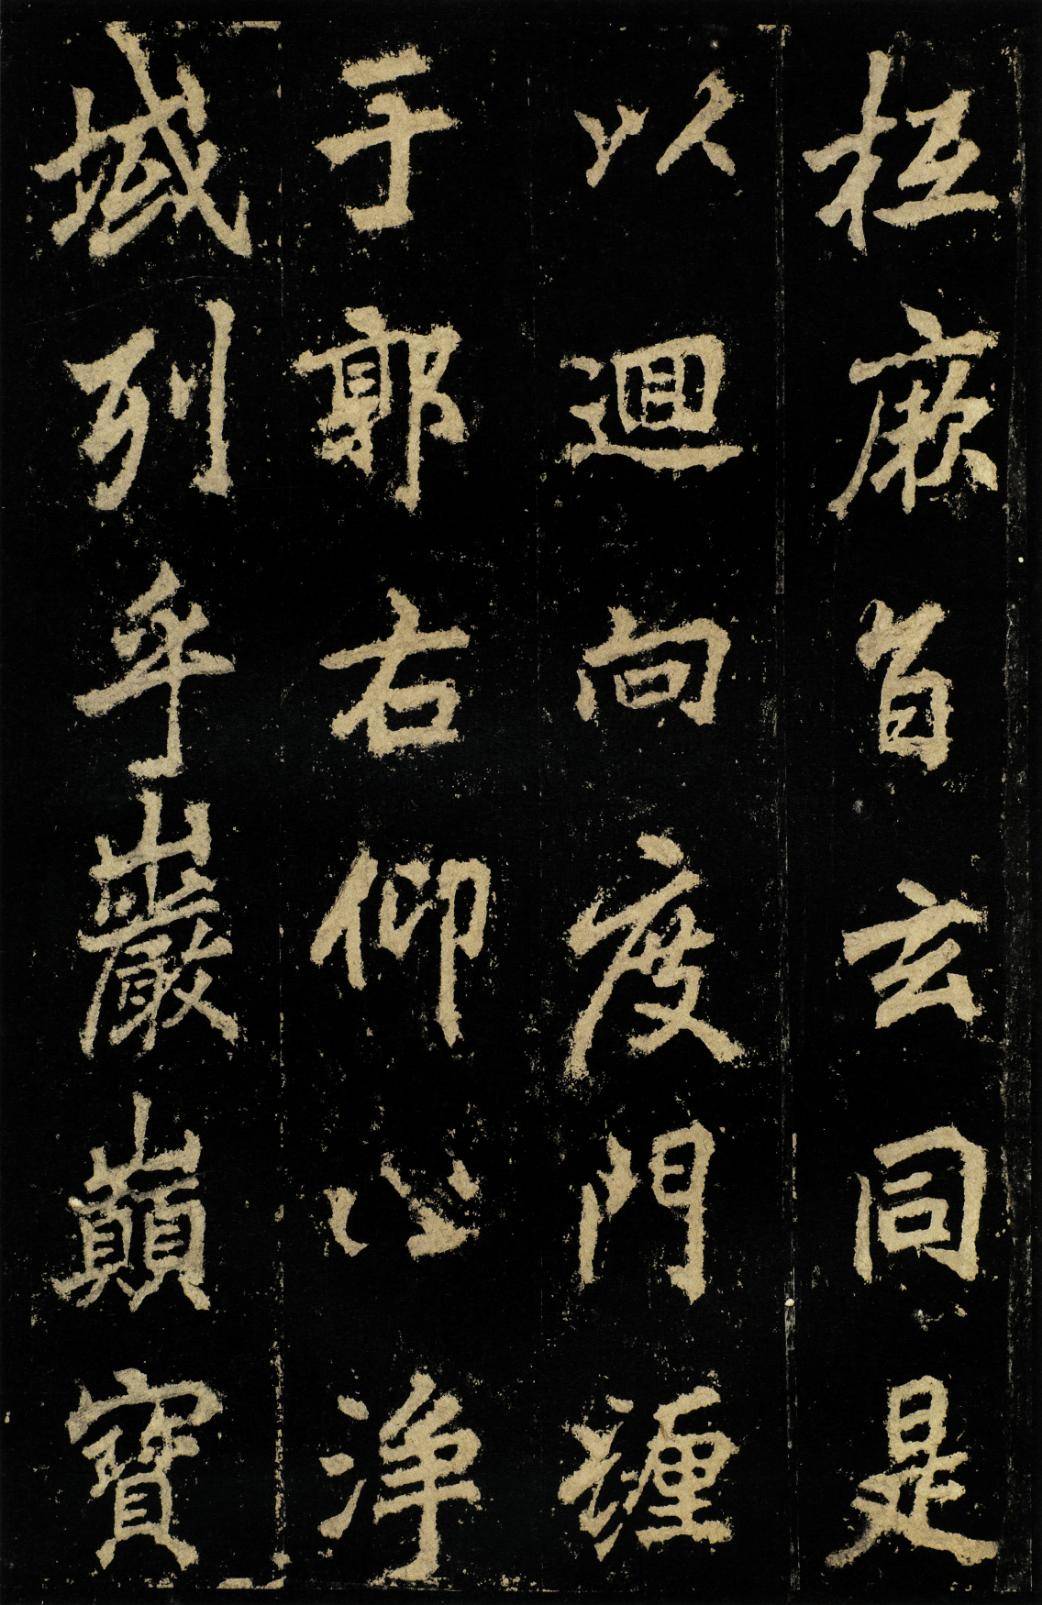 抵厥旨玄同是
以迴向度門壥
于郭右仰止淨
域列乎巖巔寶